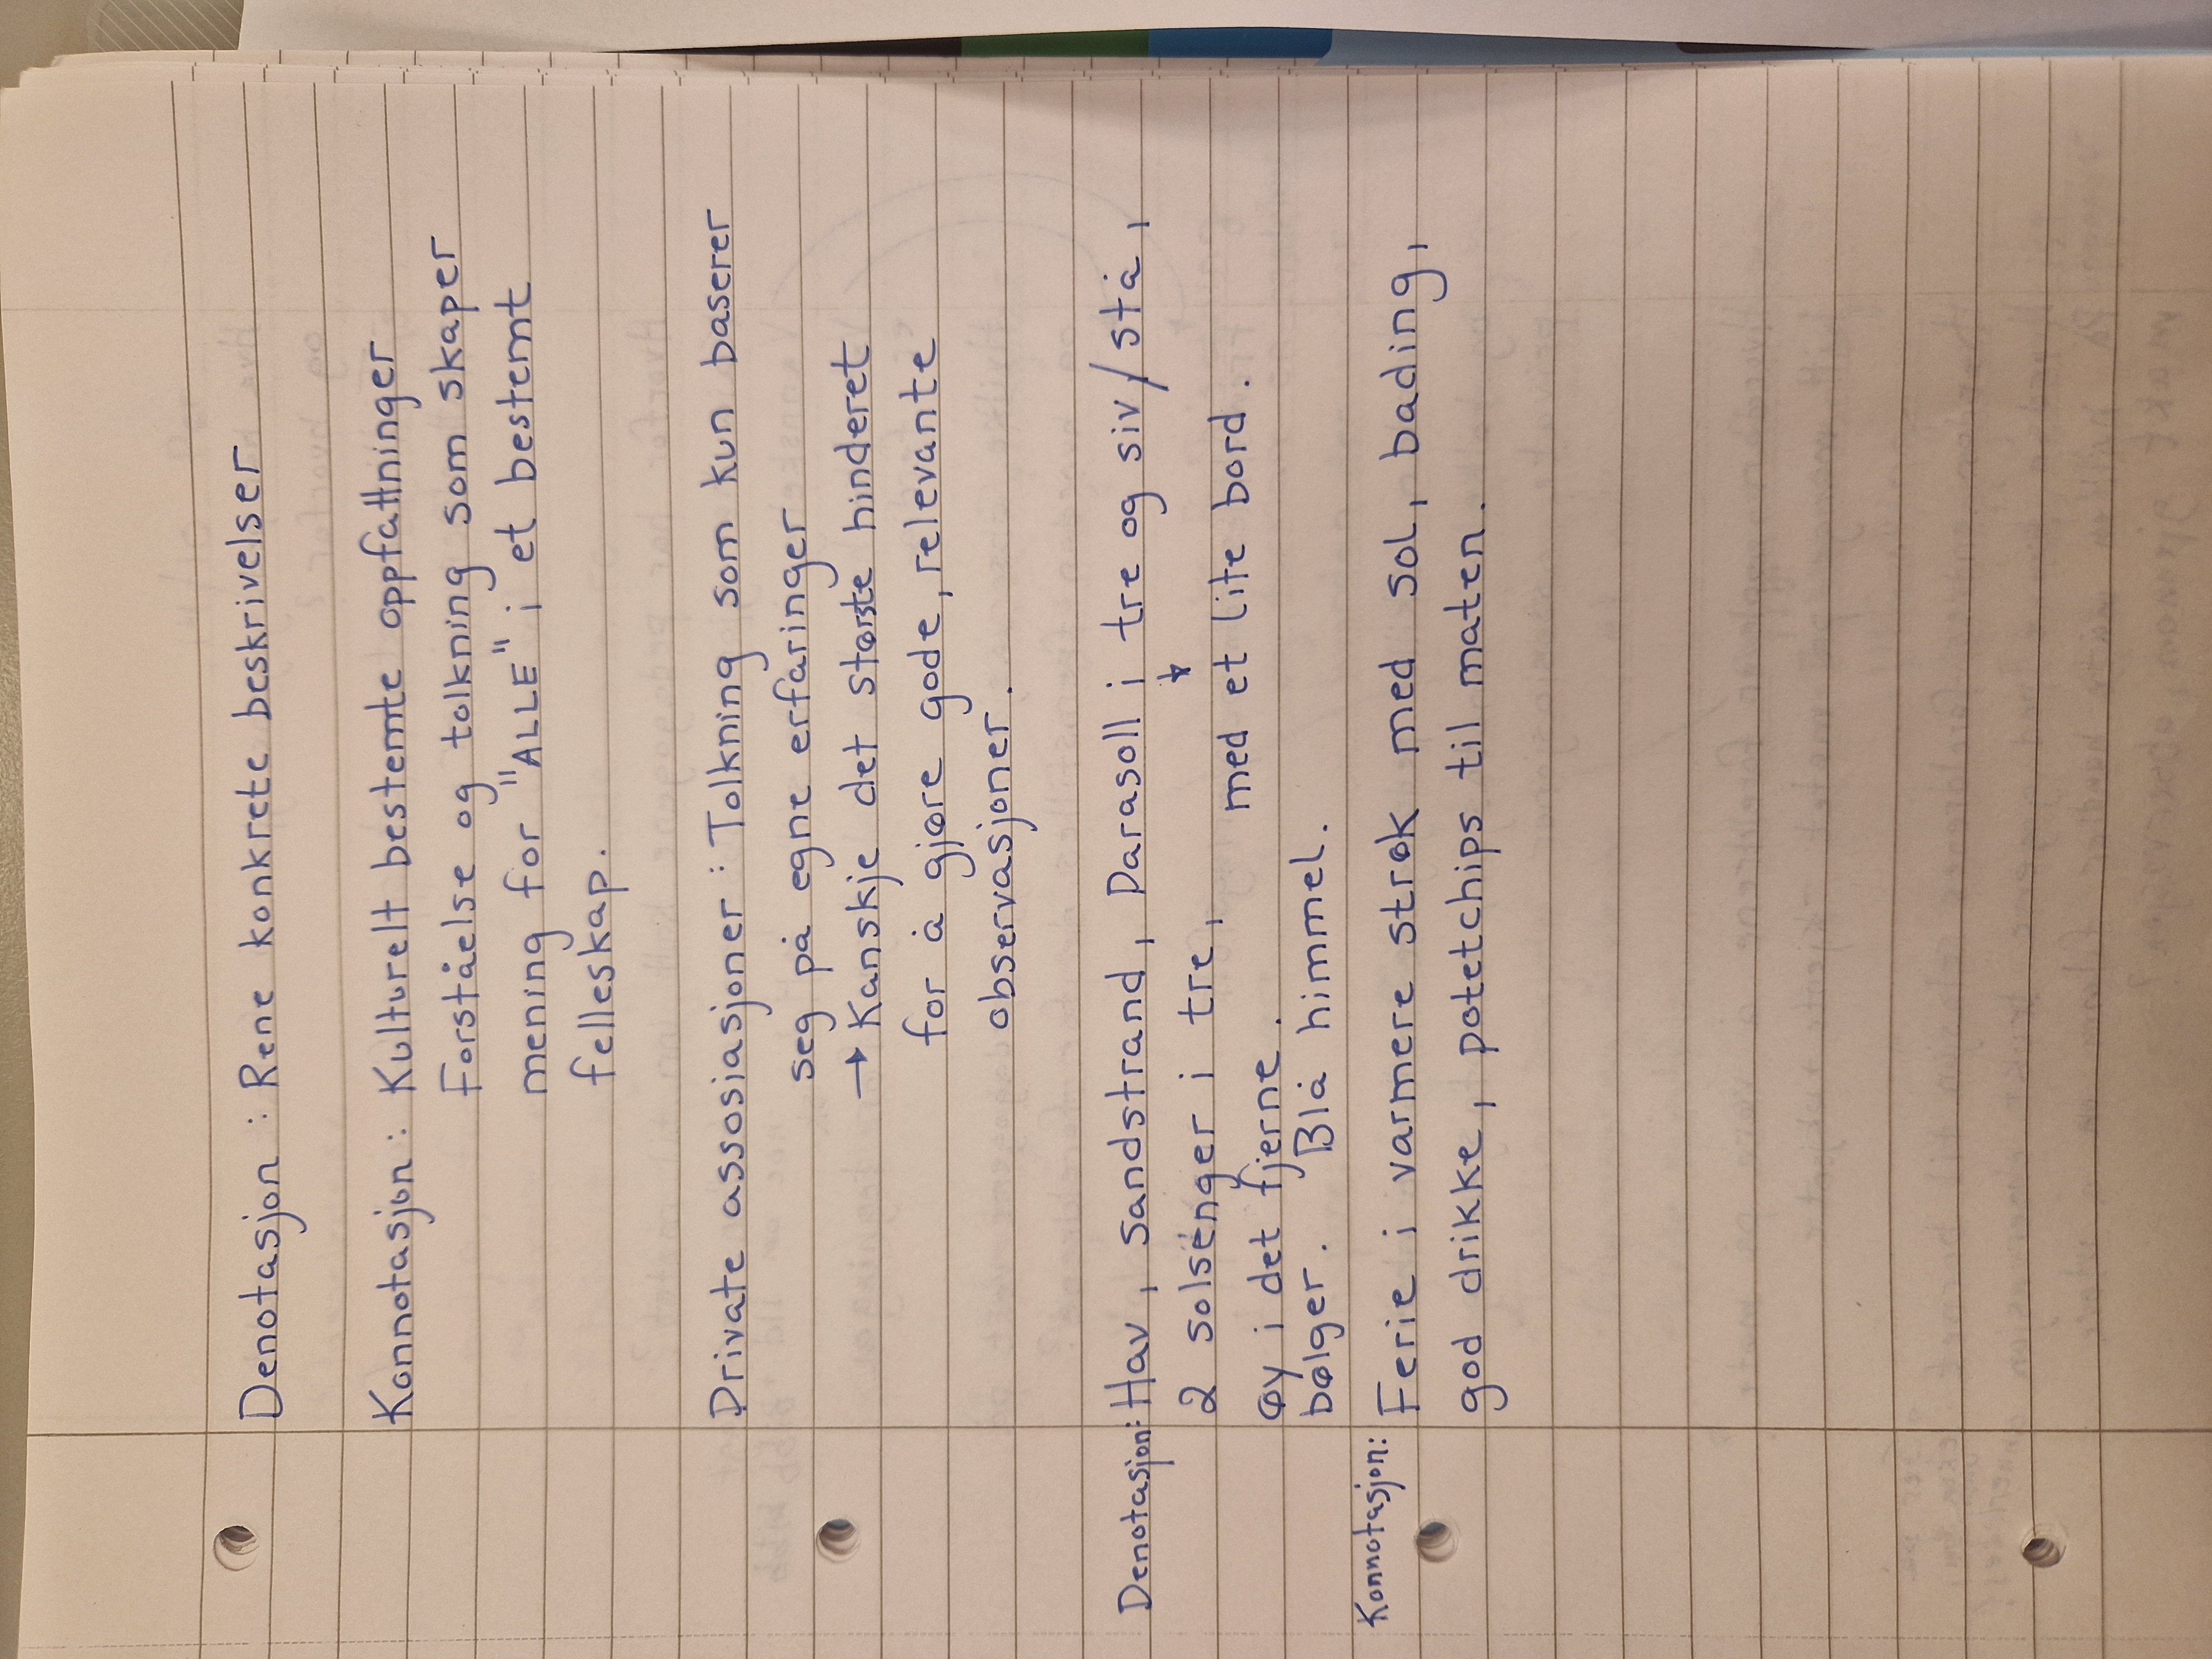 Denotasjon : Rene konkrete beskrivelser
Konnotasjon : Kulturelt bestemte oppfattninger
Forståelse og tolkning som skaper
mening for "ALLE" i et bestemt
felleskap.
Private assosiasjoner : Tolkning som kun baserer
seg på egne erfaringer
→ Kanskje det største hinderet
for å gjøre gode, relevante
observasjoner.
Denotasjon: Hav, sandstrand, Parasoll i tre og siv/strå,
2 solsenger i tre, med et lite bord.
øy i det fjerne.
bølger. Blå himmel.
Konnotasjon: Ferie i varmere strøk med sol, bading,
god drikke, potetchips til maten.